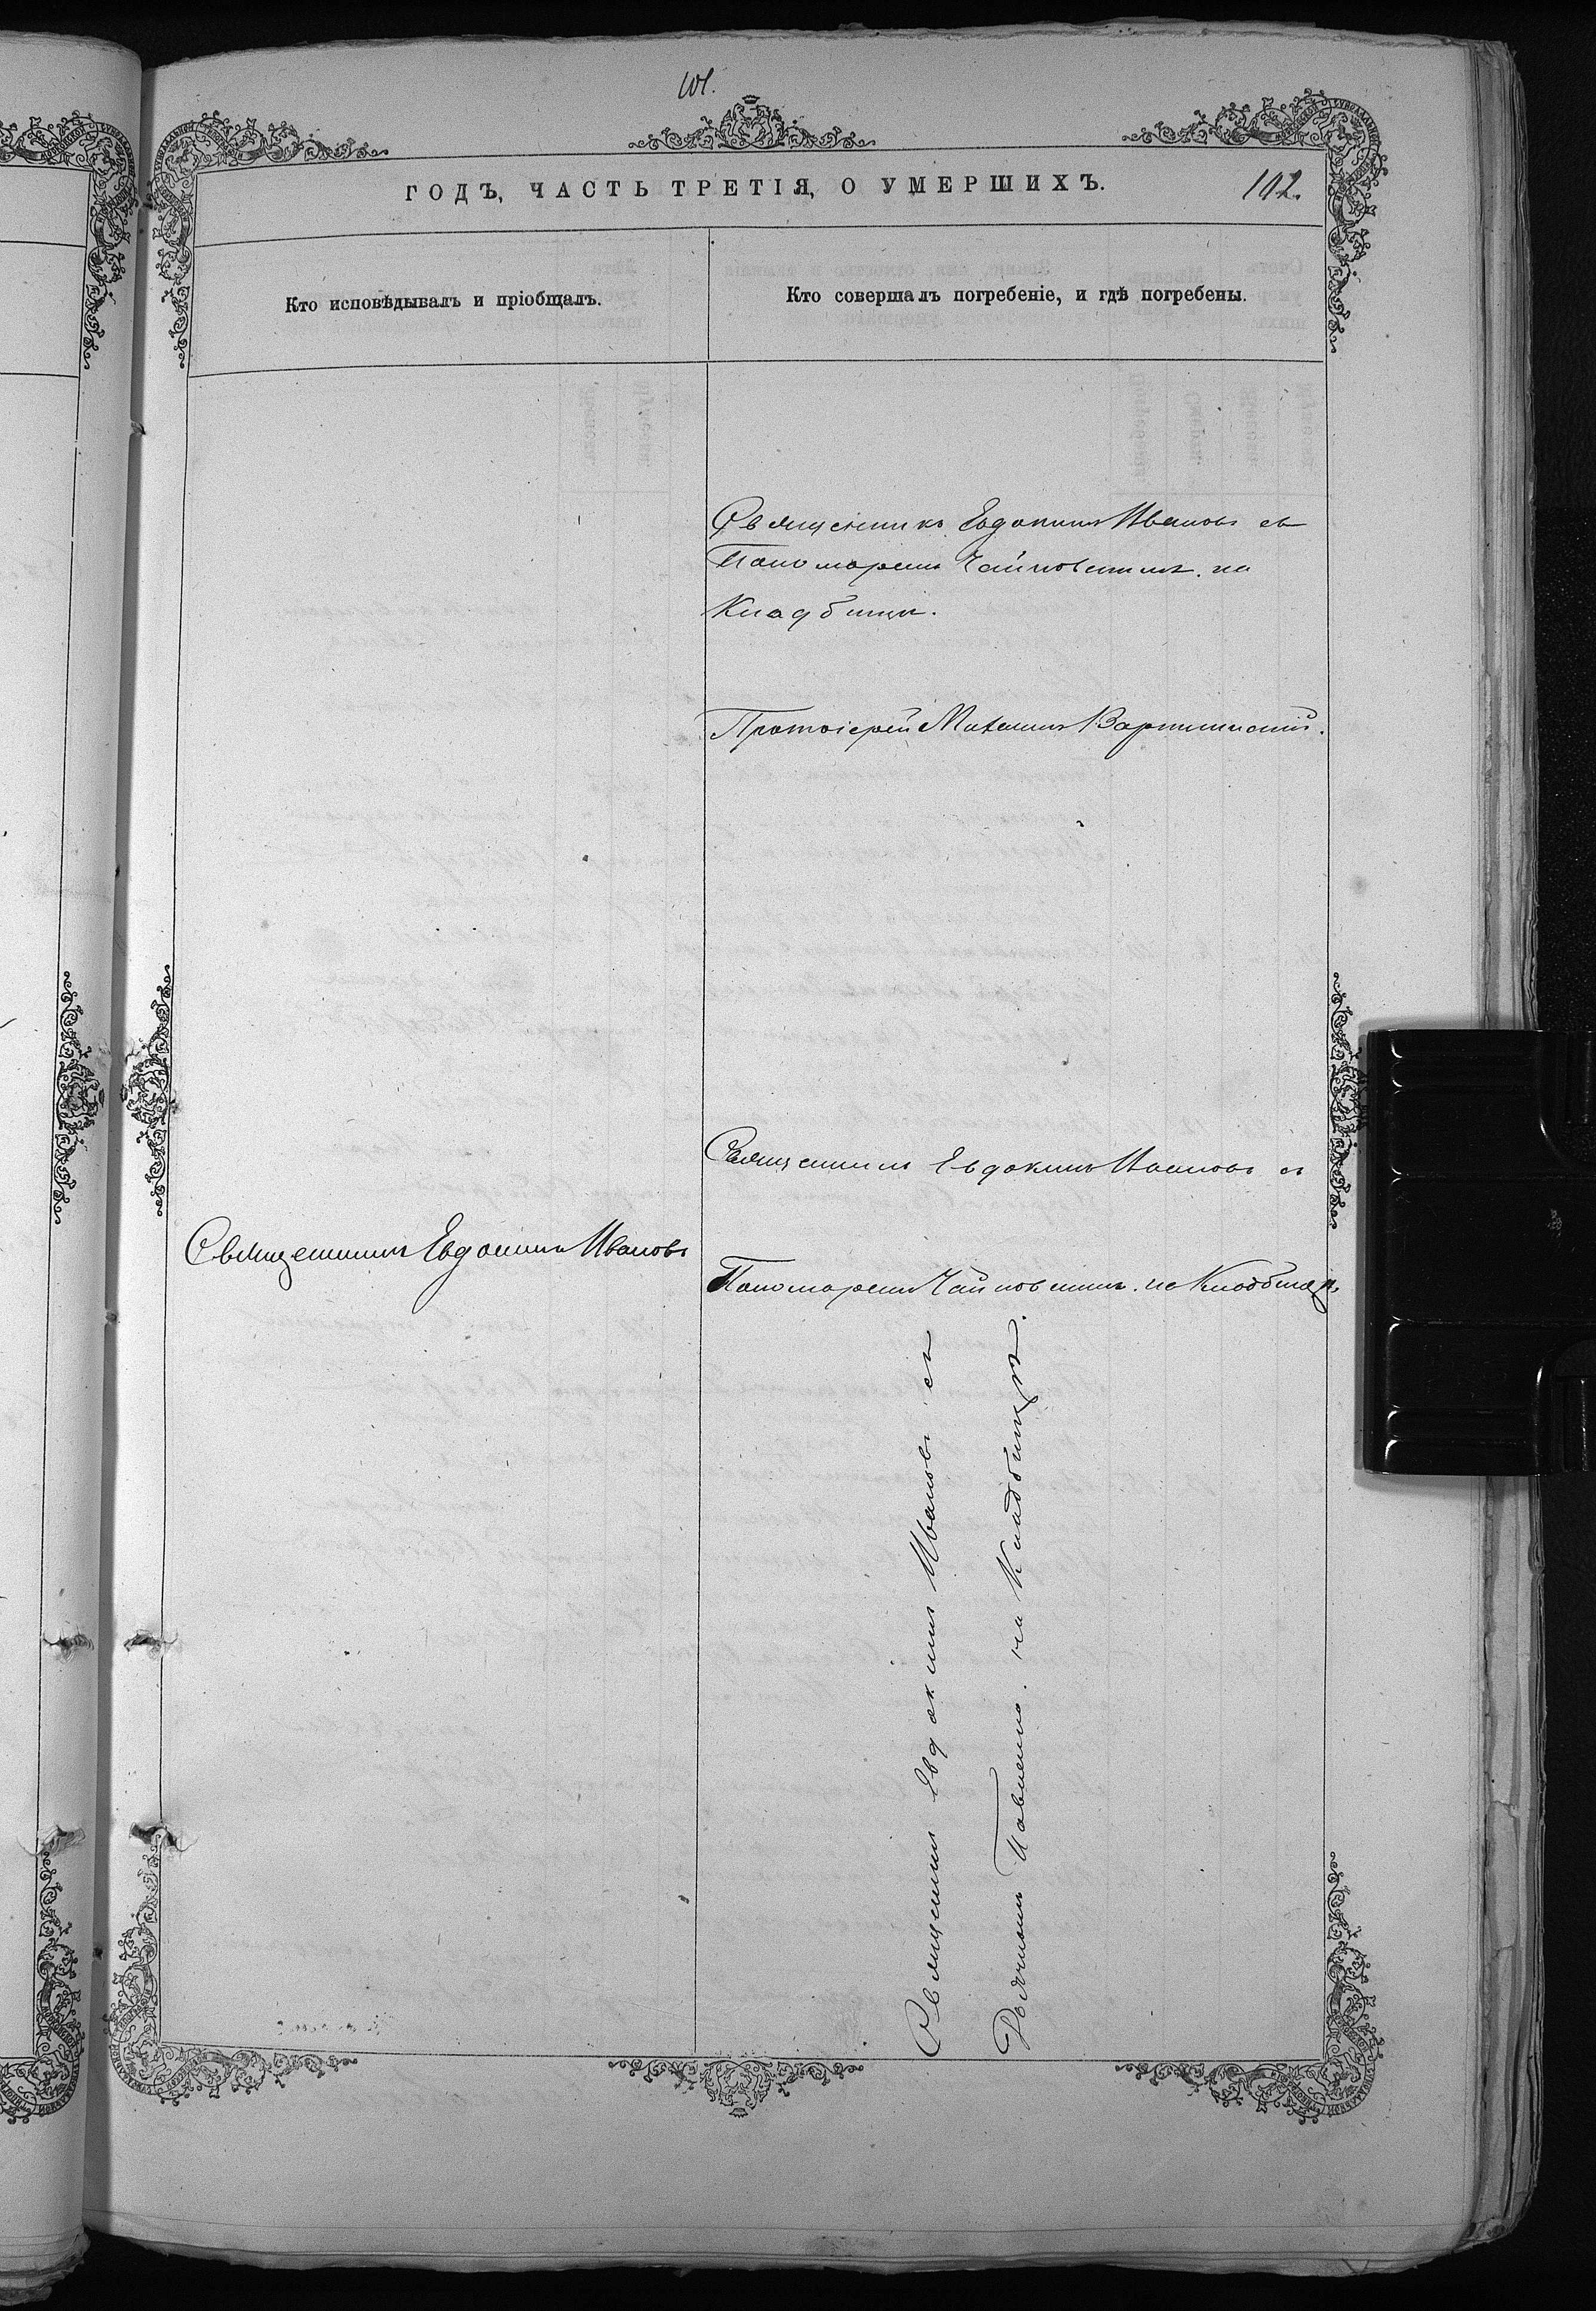 101.
ГОДЪ, ЧАСТЬ ТРЕТІЯ, О УМЕРШИХЪ.
102.
Кто исповѣдывалъ и пріобщалъ.
Кто совершалъ погребеніе, и гдѣ погребены.
Священникъ Евдокимъ Ивановъ съ
Пономаремъ Чайковскимъ. на
Кладбищѣ.
Протоіерей Михаилъ
Священникъ Евдокимъ Ивановъ съ
Священникъ Евдокимъ Ивановъ
Пономаремъ Чайковскимъ. на Кладбищѣ.
Священникъ Евдокимъ Ивановъ съ
Павленко. на Кладбищѣ.